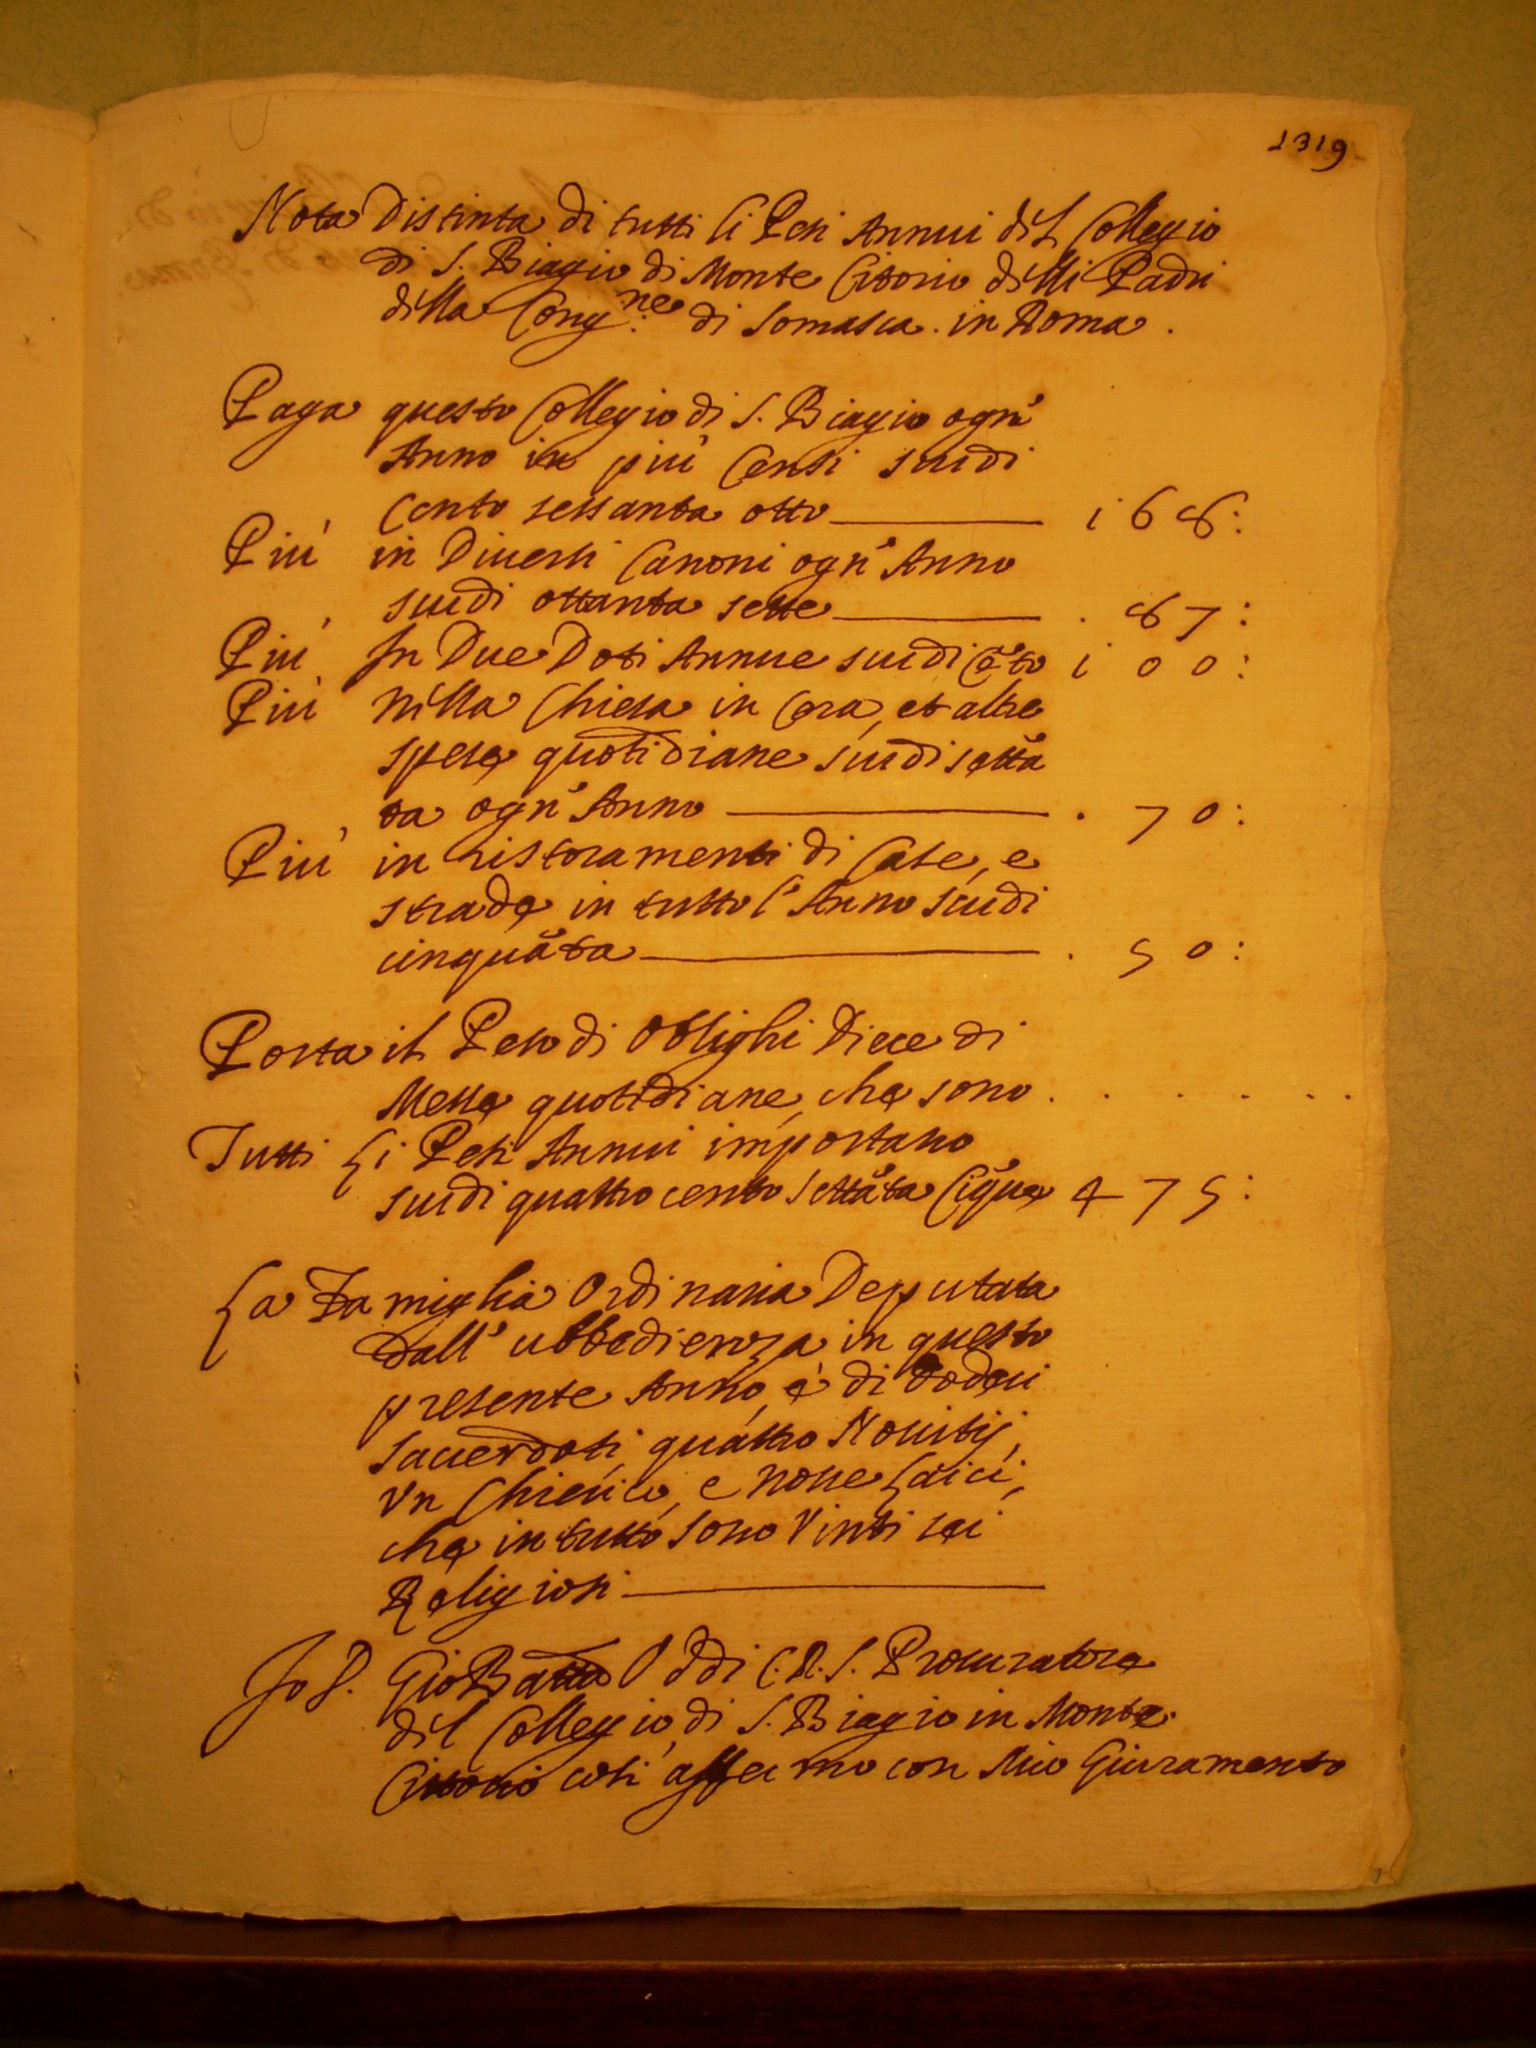 1319
Nota Distinta di tutti li Pesi Annui del Collegio
di S. Biagio di Monte Citorio delli Padri
della Cong.ne di Somasca. in Roma.
Paga questo Collegio di S. Biagio ogn'
Anno in più Censi scudi
cento sessanta otto 168:
Più in Diversi Canoni ogn' Anno
scudi ottanta sette . 87:
Più In Due Doti Annue scudi Cẽto 100:
Più nella Chiesa in Cera, et altre
spese quotidiane scudi settã
ta ogn' Anno . 70:
Più in ristoramenti di Case, e
strade in tutto l'Anno scudi
cinquãta . 50:
Porta il Peso di Oblighi Diece di
Messe quotidiane, che sono . . . . . .
Tutti Li Pesi Annui importano
scudi quattro cento settãta Cĩque 475:
La Famiglia Ordinaria Deputata
dall' ubbedienza in questo
presente Anno, è di dodeci
sacerdoti, quattro Novitij,
Un Chierico, e nove Laici,
che in tutto sono Vinti sei
Religiosi
Io D. Gio Batta Oddi C.R.S. Procuratore
del Collegio di S. Biagio in Monte
Citorio così affermo con Mio Giuramento